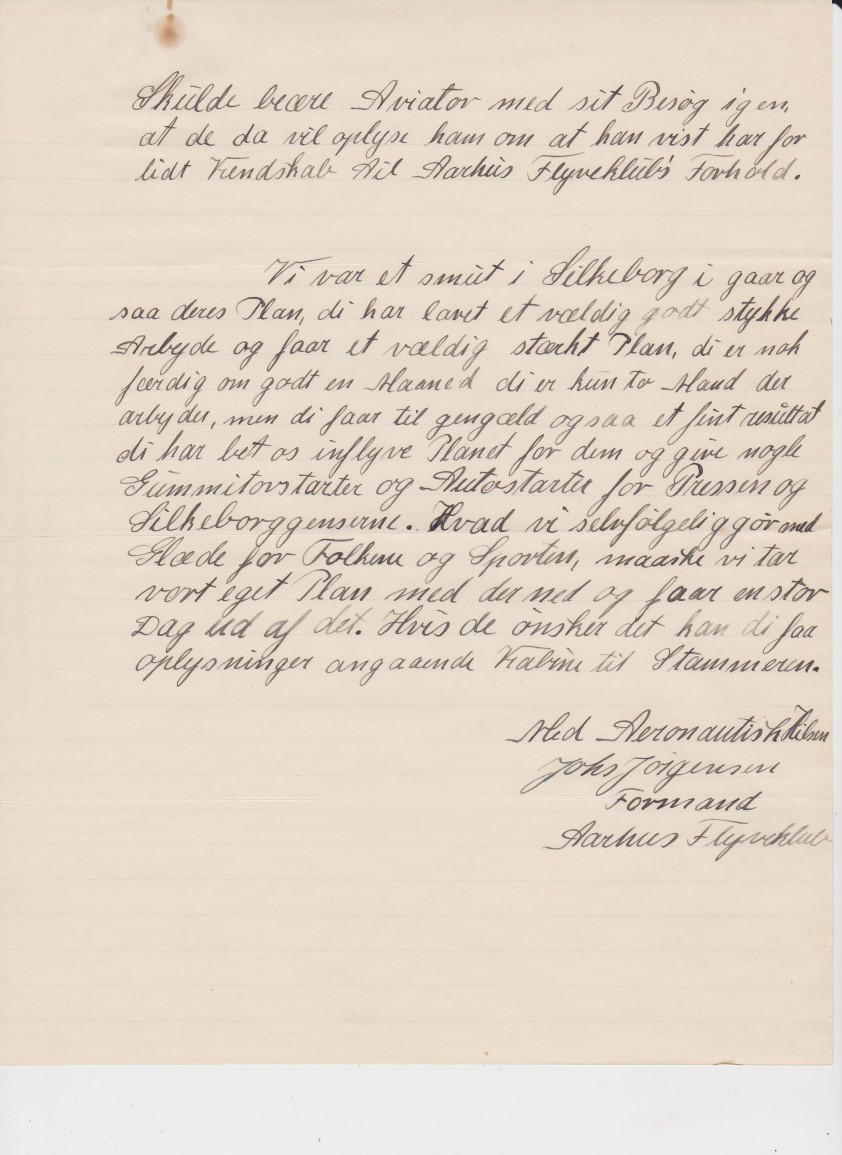 Skulde beære Aviator med sit Besøg igen,
at de da vil oplyse ham om at han vist har for
lidt Kendskab til Aarhus Flyveklub's Forhold.
Vi var et smut i Silkeborg i gaar og
saa deres Plan, di har lavet et vældig godt stykke
Arbejde og faar et vældig stærkt Plan, di er nok
færdig om godt en Maaned di er kun to Mand der
arbyder, men di faar til gengæld ogsaa et fint resultat
di har bet os inflyve Planet for dem og give nogle
Gummitovstarter og Autostarter for Pressen og
Silkeborggenserne. Hvad vi selvfølgelig gör med
Glæde for Folkene og Sporten, maaske vi tar
vort eget Plan med der ned og faar en stor
Dag ud af det. Hvis de ønsker det kan di faa
oplysninger angaaende Kabine til Stammeren.
Med Aeronautisk Hilsen
Johs Jörgensen
Formand
Aarhus Flyveklub